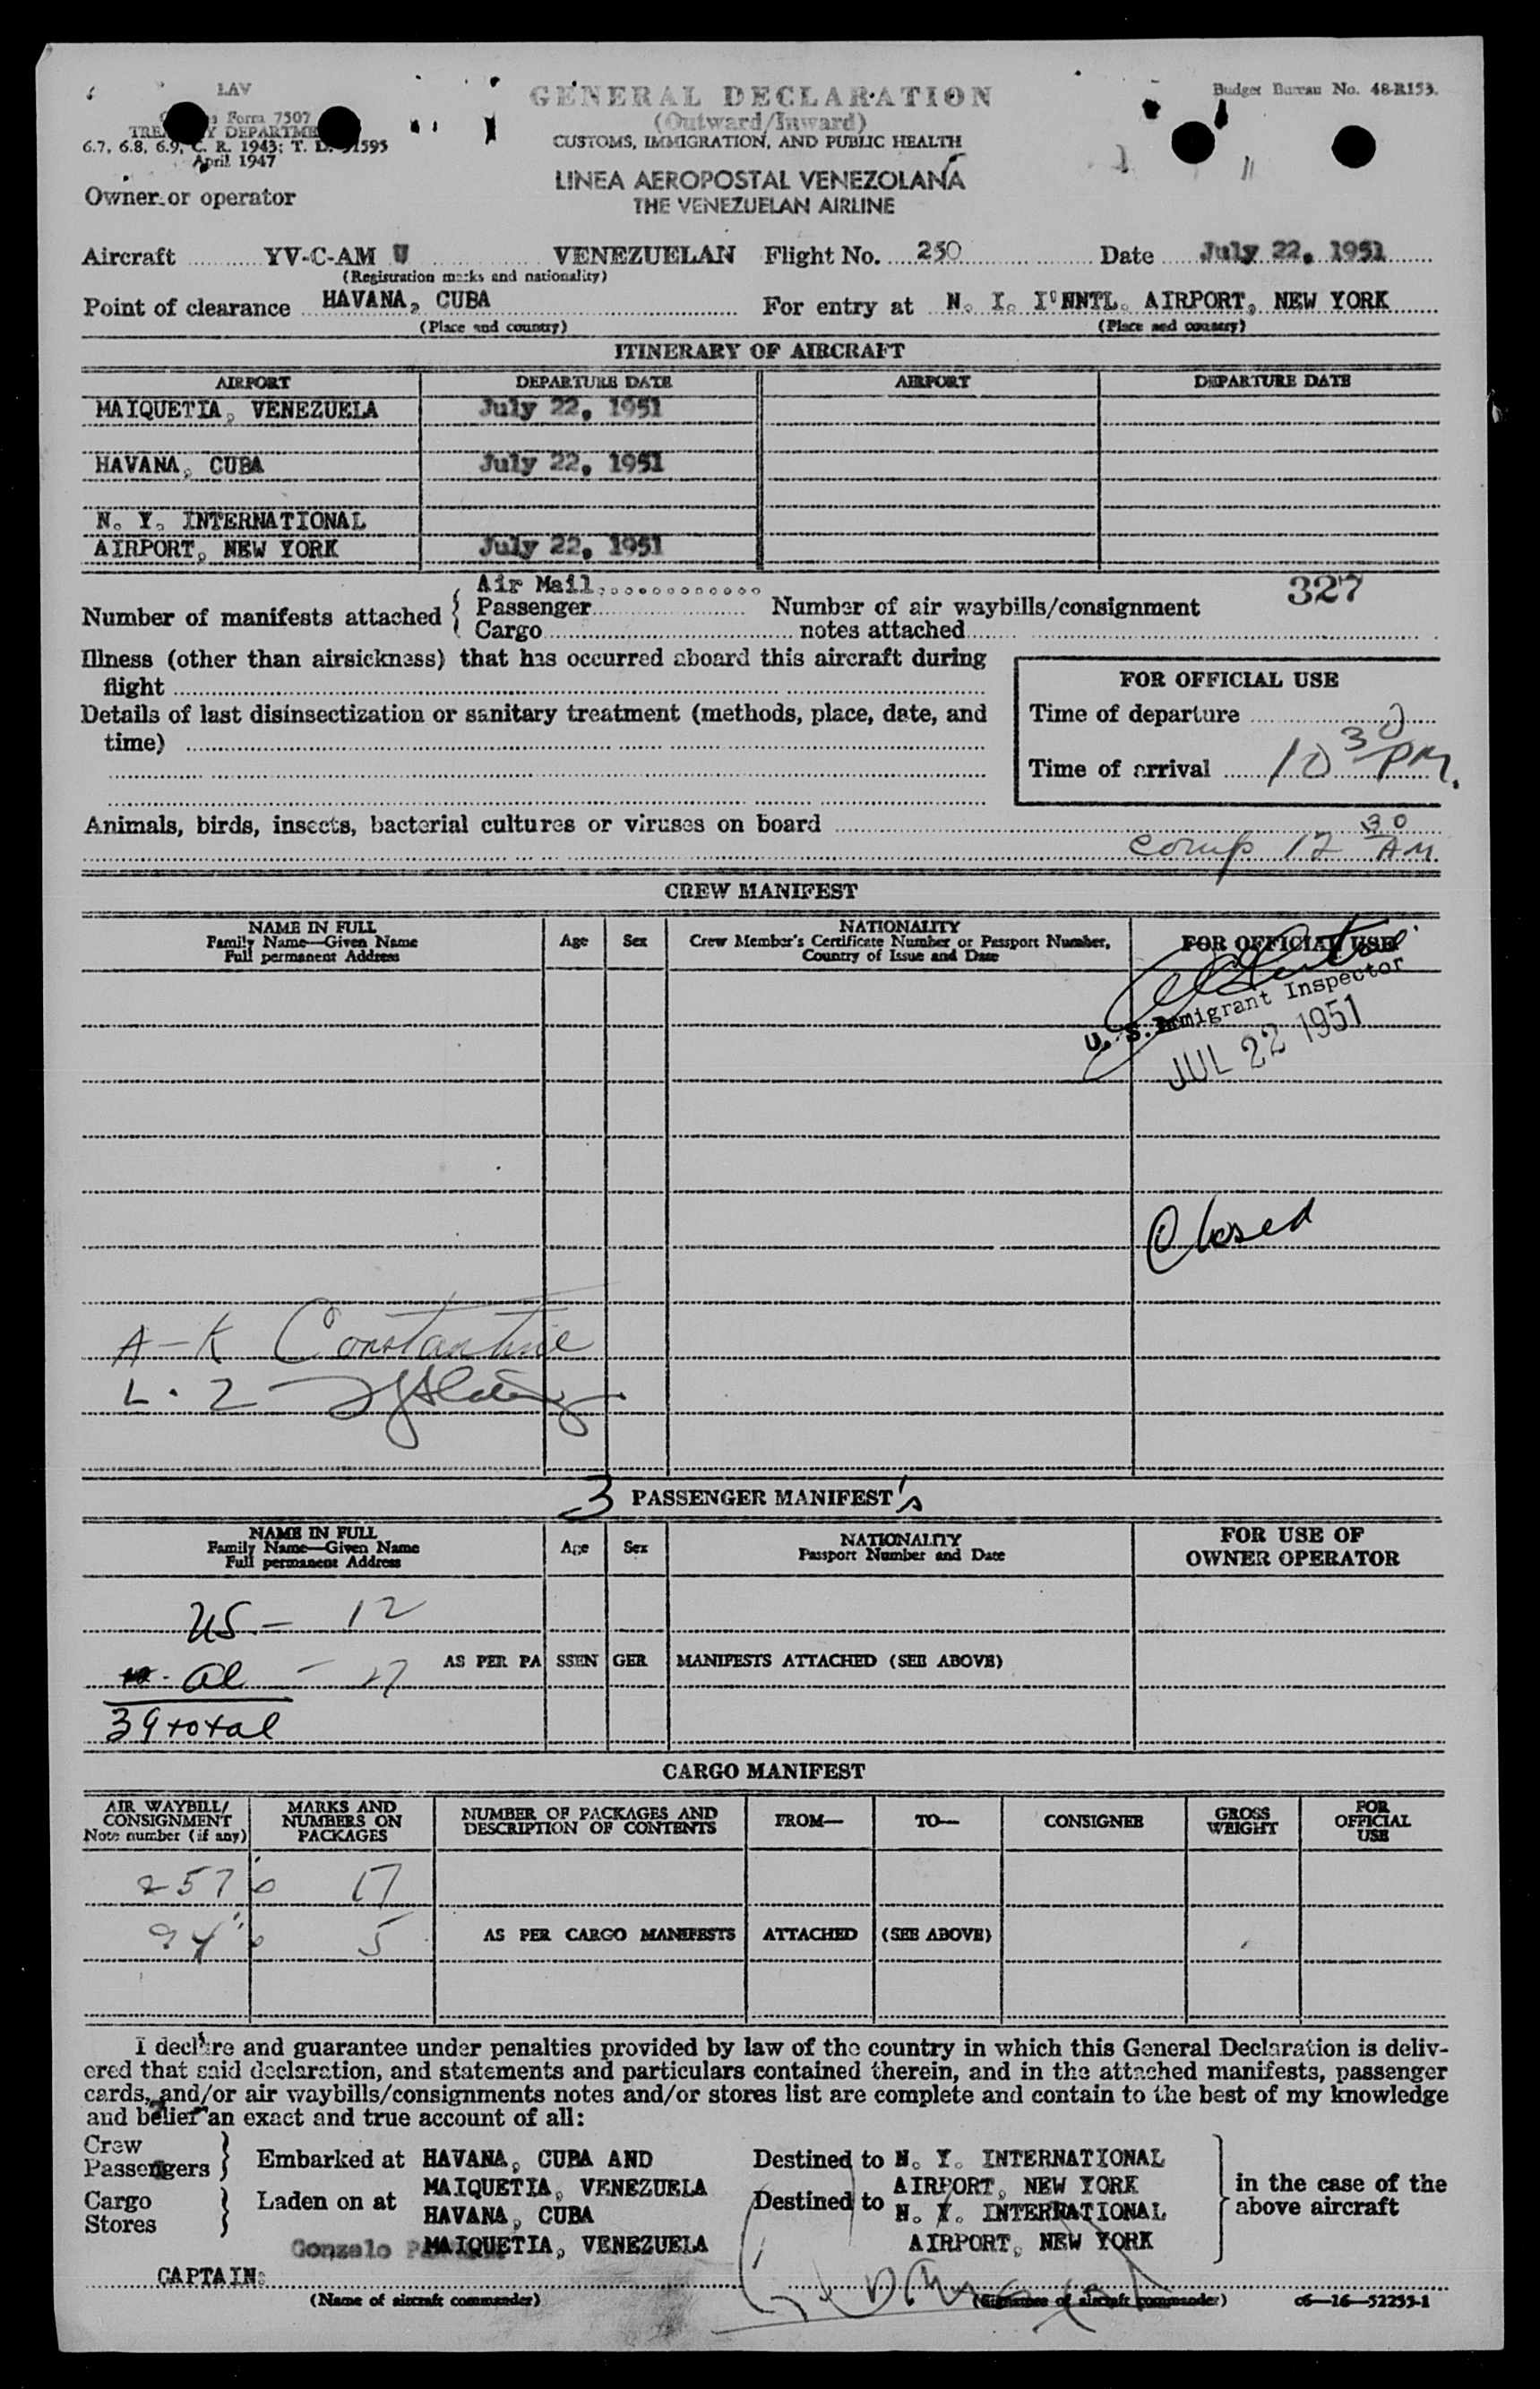 LAV
GENERAL DECLARATION
(Outward/Inward)
CUSTOMS, IMMIGRATION, AND PUBLIC HEALTH
Budget Bureau No. 48-R153.
Form 7507
TREASURY DEPARTMENT
6.7, 6.8, 6.9, C. R. 1943; T. D. 51595
April 1947
LINEA AEROPOSTAL VENEZOLANA
THE VENEZUELAN AIRLINE
Owner or operator
Aircraft YV-C-AM U VENEZUELAN Flight No. 250 Date July 22, 1951
(Registration marks and nationality)
Point of clearance HAVANA, CUBA For entry at N. I. I'NNTL. AIRPORT, NEW YORK
(Place and country) (Place and country)
ITINERARY OF AIRCRAFT
AIRPORT DEPARTURE DATE AIRPORT DEPARTURE DATE
MAIQUETIA, VENEZUELA July 22, 1951
HAVANA, CUBA July 22, 1951
N. Y. INTERNATIONAL
AIRPORT, NEW YORK July 22, 1951
327
Number of manifests attached { Air Mail
Passenger Number of air waybills/consignment
Cargo notes attached
Illness (other than airsickness) that has occurred aboard this aircraft during
flight
Details of last disinsectization or sanitary treatment (methods, place, date, and
time)
FOR OFFICIAL USE
Time of departure
Time of arrival 10 30 PM.
Animals, birds, insects, bacterial cultures or viruses on board
comp 12 30 AM.
CREW MANIFEST
NAME IN FULL
Family Name—Given Name
Full permanent Address
Age Sex
NATIONALITY
Crew Member's Certificate Number or Passport Number,
Country of Issue and Date
FOR OFFICIAL USE
U. S. Immigrant Inspector
JUL 22 1951
Closed
A-K Constantine
L. Z
3 PASSENGER MANIFEST's
NAME IN FULL
Family Name—Given Name
Full permanent Address
Age Sex
NATIONALITY
Passport Number and Date
FOR USE OF
OWNER OPERATOR
US - 12
al - 27 AS PER PASSENGER MANIFESTS ATTACHED (SEE ABOVE)
39 total
CARGO MANIFEST
AIR WAYBILL/
CONSIGNMENT
Note number (if any)
MARKS AND
NUMBERS ON
PACKAGES
NUMBER OF PACKAGES AND
DESCRIPTION OF CONTENTS
FROM— TO— CONSIGNEE
GROSS
WEIGHT
FOR
OFFICIAL
USE
257 17
94 5 AS PER CARGO MANIFESTS ATTACHED (SEE ABOVE)
I declare and guarantee under penalties provided by law of the country in which this General Declaration is deliv-
ered that said declaration, and statements and particulars contained therein, and in the attached manifests, passenger
cards, and/or air waybills/consignments notes and/or stores list are complete and contain to the best of my knowledge
and belief an exact and true account of all:
Crew
Passengers } Embarked at HAVANA, CUBA AND Destined to N. Y. INTERNATIONAL
MAIQUETIA, VENEZUELA AIRPORT, NEW YORK
Cargo
Stores } Laden on at HAVANA, CUBA Destined to N. Y. INTERNATIONAL
MAIQUETIA, VENEZUELA AIRPORT, NEW YORK
in the case of the
above aircraft
Gonzalo
CAPTAIN:
(Name of aircraft commander) (Signature of aircraft commander) c6—16—52255-1